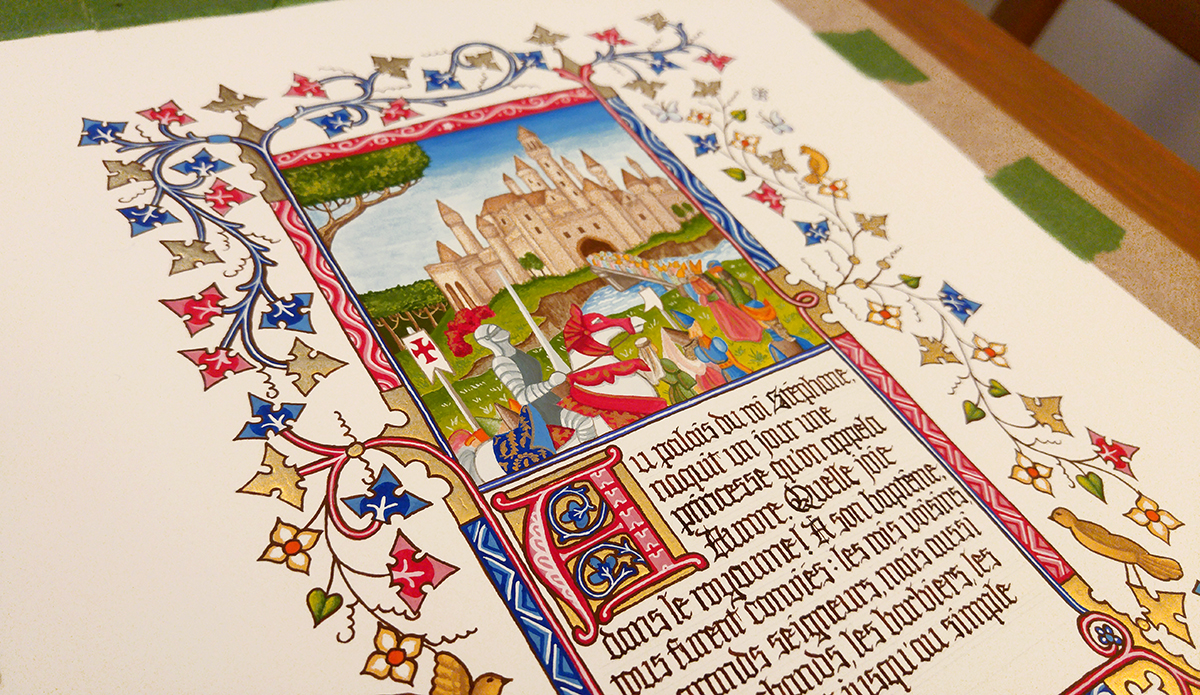 Au palais du roi Stéphane,
naquit un jour une
princesse qu'on appela
Aurore. Quelle joie
dans le royaume! A son baptême
tous furent conviés: les rois voisins
grands seigneurs mais aussi
les barbiers, les
jusqu'au simple